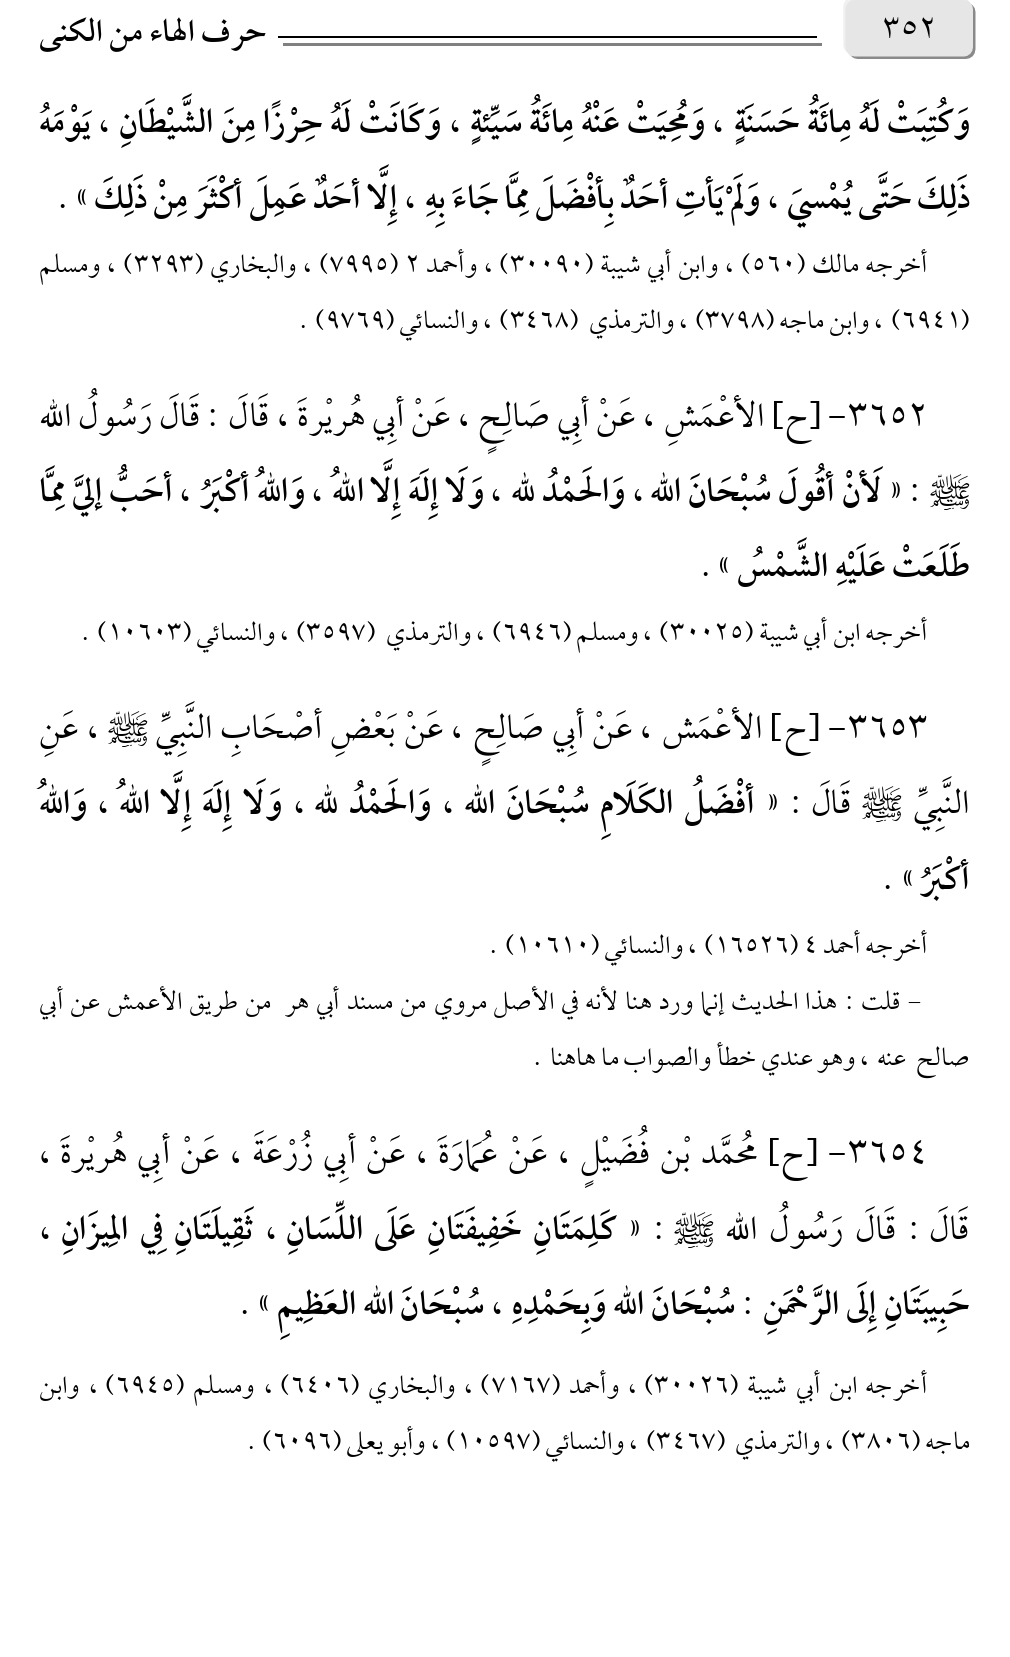 ٣٥٢
حرف الهاء من الكنى
وَكُتِبَتْ لَهُ مِائَةُ حَسَنَةٍ ، وَمُحِيَتْ عَنْهُ مِائَةُ سَيِّئةٍ ، وَكَانَتْ لَهُ حِرْزًا مِنَ الشَّيْطَانِ ، يَوْمَهُ
ذَلِكَ حَتَّى يُمْسيَ ، وَلَمْ يَأتِ أحَدٌ بِأفْضَلَ مِمَّا جَاءَ بِهِ ، إِلَّا أحَدٌ عَمِلَ أكْثَرَ مِنْ ذَلِكَ » .
أخرجه مالك (٥٦٠) ، وابن أبي شيبة (٣٠٠٩٠) ، وأحمد ٢ (٧٩٩٥) ، والبخاري (٣٢٩٣) ، ومسلم
(٦٩٤١) ، وابن ماجه (٣٧٩٨) ، والترمذي (٣٤٦٨) ، والنسائي (٩٧٦٩) .
٣٦٥٢- [ح] الأعْمَشِ ، عَنْ أبِي صَالِحٍ ، عَنْ أبِي هُرَيْرةَ ، قَالَ : قَالَ رَسُولُ الله
ﷺ : « لَأنْ أقُولَ سُبْحَانَ الله ، وَالحَمْدُ لله ، وَلَا إِلَهَ إِلَّا اللهُ ، وَاللهُ أكْبَرُ ، أحَبُّ إليَّ مِمَّا
طَلَعَتْ عَلَيْهِ الشَّمْسُ » .
أخرجه ابن أبي شيبة (٣٠٠٢٥) ، ومسلم (٦٩٤٦) ، والترمذي (٣٥٩٧) ، والنسائي (١٠٦٠٣) .
٣٦٥٣- [ح] الأعْمَش ، عَنْ أبِي صَالِحٍ ، عَنْ بَعْضِ أصْحَابِ النَّبِيِّ ﷺ ، عَنِ
النَّبِيِّ ﷺ قَالَ : « أفْضَلُ الكَلَامِ سُبْحَانَ الله ، وَالحَمْدُ لله ، وَلَا إِلَهَ إِلَّا اللهُ ، وَاللهُ
أكْبَرُ » .
أخرجه أحمد ٤ (١٦٥٢٦) ، والنسائي (١٠٦١٠) .
- قلت : هذا الحديث إنما ورد هنا لأنه في الأصل مروي من مسند أبي هر من طريق الأعمش عن أبي
صالح عنه ، وهو عندي خطأ والصواب ما هاهنا .
٣٦٥٤- [ح] مُحمَّد بْن فُضَيْلٍ ، عَنْ عُمَارَةَ ، عَنْ أبِي زُرْعَةَ ، عَنْ أبِي هُرَيْرةَ ،
قَالَ : قَالَ رَسُولُ الله ﷺ : « كَلِمَتَانِ خَفِيفَتَانِ عَلَى اللِّسَانِ ، ثَقِيلَتَانِ فِي المِيزَانِ ،
حَبِيبَتَانِ إِلَى الرَّحْمَنِ : سُبْحَانَ الله وَبِحَمْدِهِ ، سُبْحَانَ الله العَظِيمِ » .
أخرجه ابن أبي شيبة (٣٠٠٢٦) ، وأحمد (٧١٦٧) ، والبخاري (٦٤٠٦) ، ومسلم (٦٩٤٥) ، وابن
ماجه (٣٨٠٦) ، والترمذي (٣٤٦٧) ، والنسائي (١٠٥٩٧) ، وأبو يعلى (٦٠٩٦) .